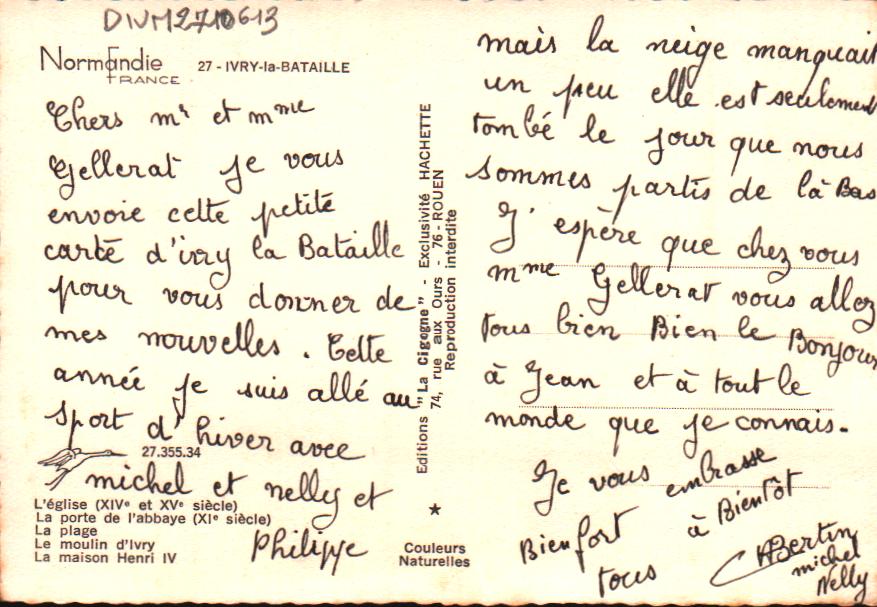 DIVM2710613
Normandie
FRANCE
27 - IVRY-la-BATAILLE
Chers mr et mme
Gellerat je vous
envoie cette petite
carte d'ivry la Bataille
pour vous donner de
mes nouvelles. Cette
année je suis allé au
sport d'hiver avec
michel et nelly et
Philippe
27.355.34
L'église (XIVe et XVe siècle)
La porte de l'abbaye (XIe siècle)
La plage
Le moulin d'Ivry
La maison Henri IV
Couleurs
Naturelles
Editions "La Cigogne" - Exclusivité HACHETTE
74, rue aux Ours - 76 - ROUEN
Reproduction interdite
mais la neige manquait
un peu elle est seulement
tombé le jour que nous
sommes partis de là Bas
J'espère que chez vous
mme Gellerat vous allez
tous bien Bien le Bonjour
à Jean et à tout le
monde que je connais.
Je vous embrasse
Bien fort à Bientôt
tous
Bertin
michel
Nelly